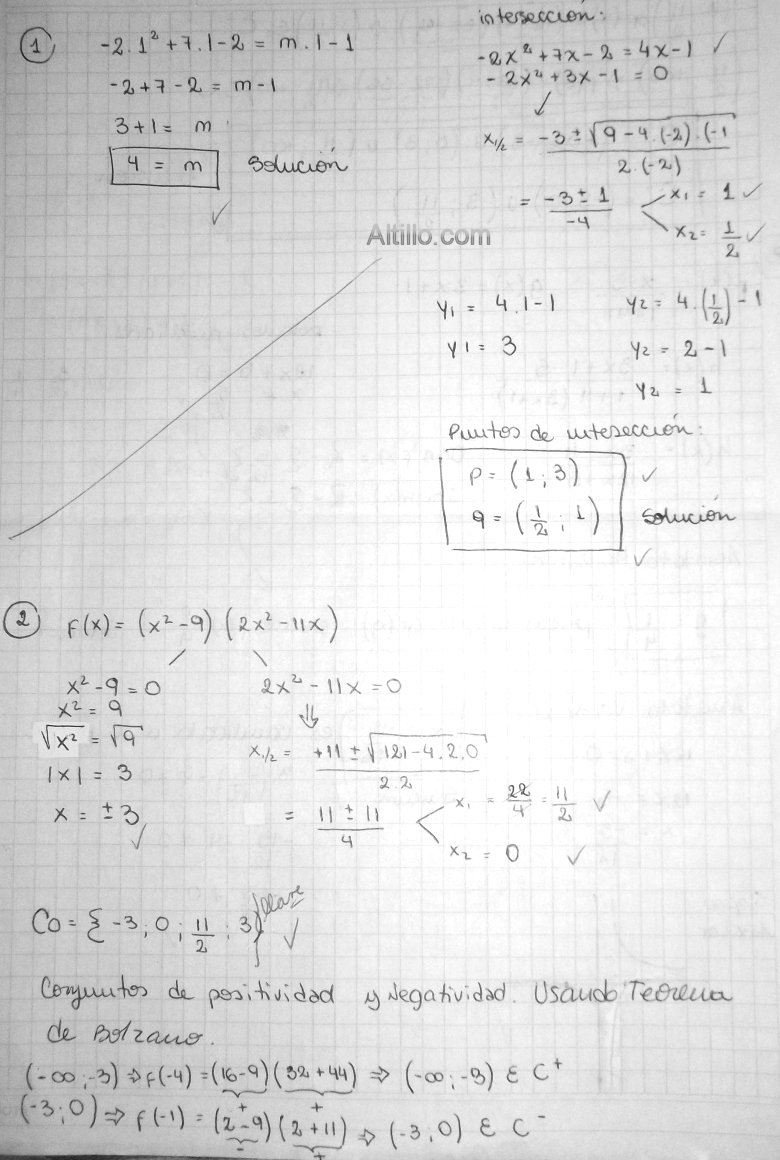 1
-2.1² + 7.1 - 2 = m.1 - 1
-2 + 7 - 2 = m - 1
3 + 1 = m
4 = m Solución
intersección:
-2x² + 7x - 2 = 4x - 1
-2x² + 3x - 1 = 0
x1/2 = (-3 ± √(9 - 4.(-2).(-1)) / 2.(-2)
= (-3 ± 1) / -4
x1 = 1
x2 = 1/2
Altillo.com
y1 = 4.1 - 1 y2 = 4.(1/2) - 1
y1 = 3 y2 = 2 - 1
y2 = 1
Puntos de intesección:
P = (1 ; 3)
q = (1/2 ; 1) Solución
2 F(x) = (x² - 9) (2x² - 11x)
x² - 9 = 0 2x² - 11x = 0
x² = 9
√x² = √9
|x| = 3
x = ±3
x1/2 = (+11 ± √(121 - 4.2.0)) / 2.2
= (11 ± 11) / 4
x1 = 22/4 = 11/2
x2 = 0
Co = { -3 ; 0 ; 11/2 ; 3 }
Conjuntos de positividad y Negatividad. Usando Teorema
de Bolzano.
(-∞ ; -3) ⇒ f(-4) = (16-9) (32+44) ⇒ (-∞ ; -3) ε C⁺
+ +
(-3 ; 0) ⇒ f(-1) = (2-9) (2+11) ⇒ (-3 ; 0) ε C⁻
- +